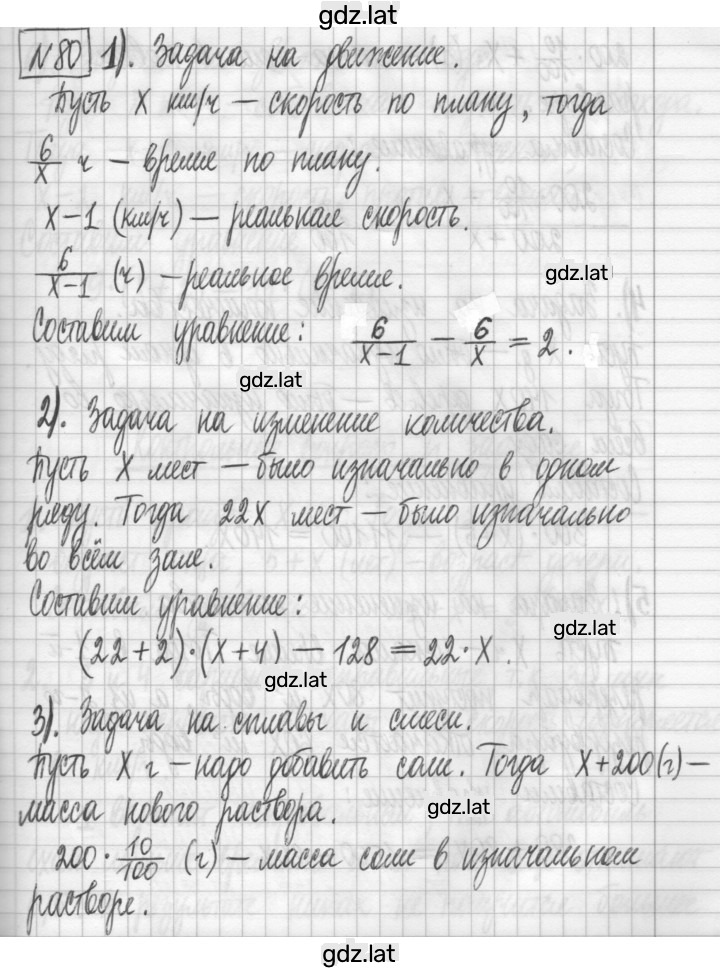 gdz.lat
№80 1). Задача на движение.
Пусть x км/ч – скорость по плану, тогда
6/x ч – время по плану.
x-1 (км/ч) – реальная скорость.
6/(x-1) (ч) – реальное время.
gdz.lat
Составим уравнение: 6/(x-1) - 6/x = 2.
gdz.lat
2). Задача на изменение количества.
Пусть x мест – было изначально в одном
ряду. Тогда 22x мест – было изначально
во всём зале.
Составим уравнение:
gdz.lat
(22+2)·(x+4) - 128 = 22·x.
gdz.lat
3). Задача на сплавы и смеси.
Пусть x г – надо добавить соли. Тогда x+200(г) –
масса нового раствора.
gdz.lat
200·10/100 (г) – масса соли в изначальном
растворе.
gdz.lat